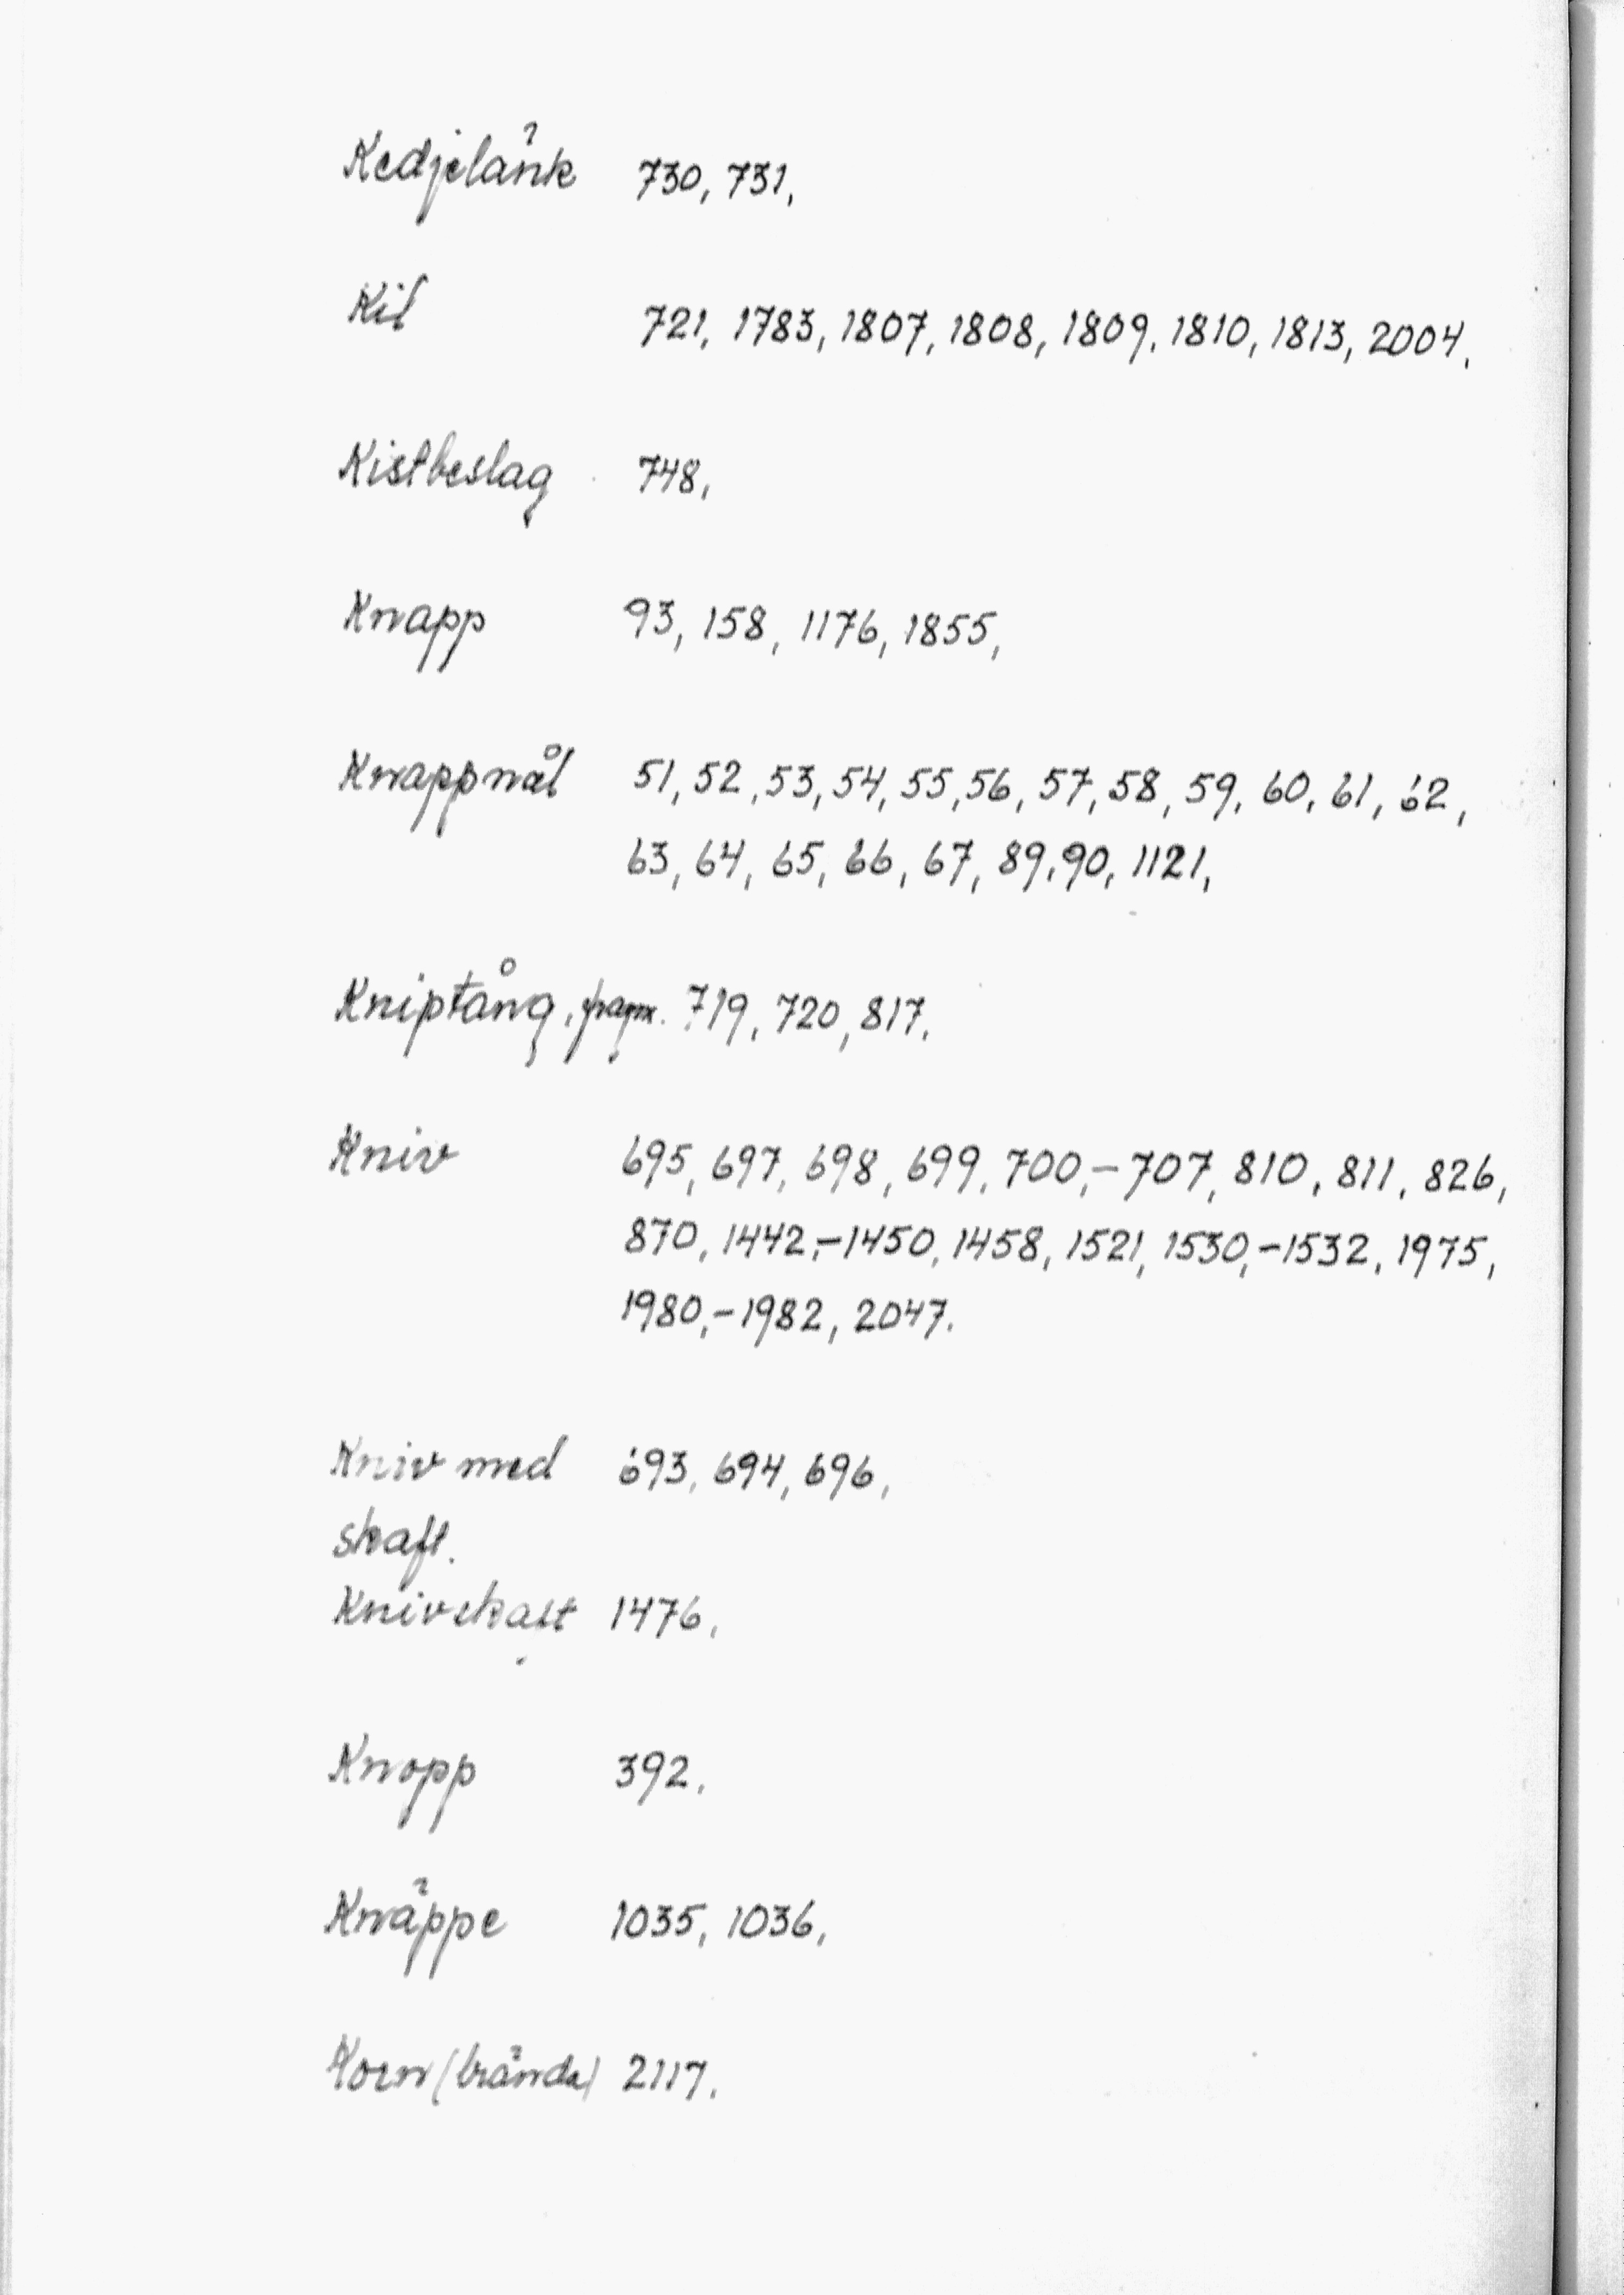 Kedjelänk 730, 731,
Kil 721, 1783, 1807, 1808, 1809, 1810, 1813, 2004,
Kistbeslag 748,
Knapp 93, 158, 1176, 1855,
Knappnål 51, 52, 53, 54, 55, 56, 57, 58, 59, 60, 61, 62,
63, 64, 65, 66, 67, 89, 90, 1121,
Kniptång, fragm. 719, 720, 817,
Kniv 695, 697, 698, 699, 700,-707, 810, 811, 826,
870, 1442,-1450, 1458, 1521, 1530,-1532, 1975,
1980,-1982, 2047.
Kniv med 693, 694, 696,
skaft.
Knivskaft 1476,
Knopp 392,
Knäppe 1035, 1036,
Korn (brända) 2117,